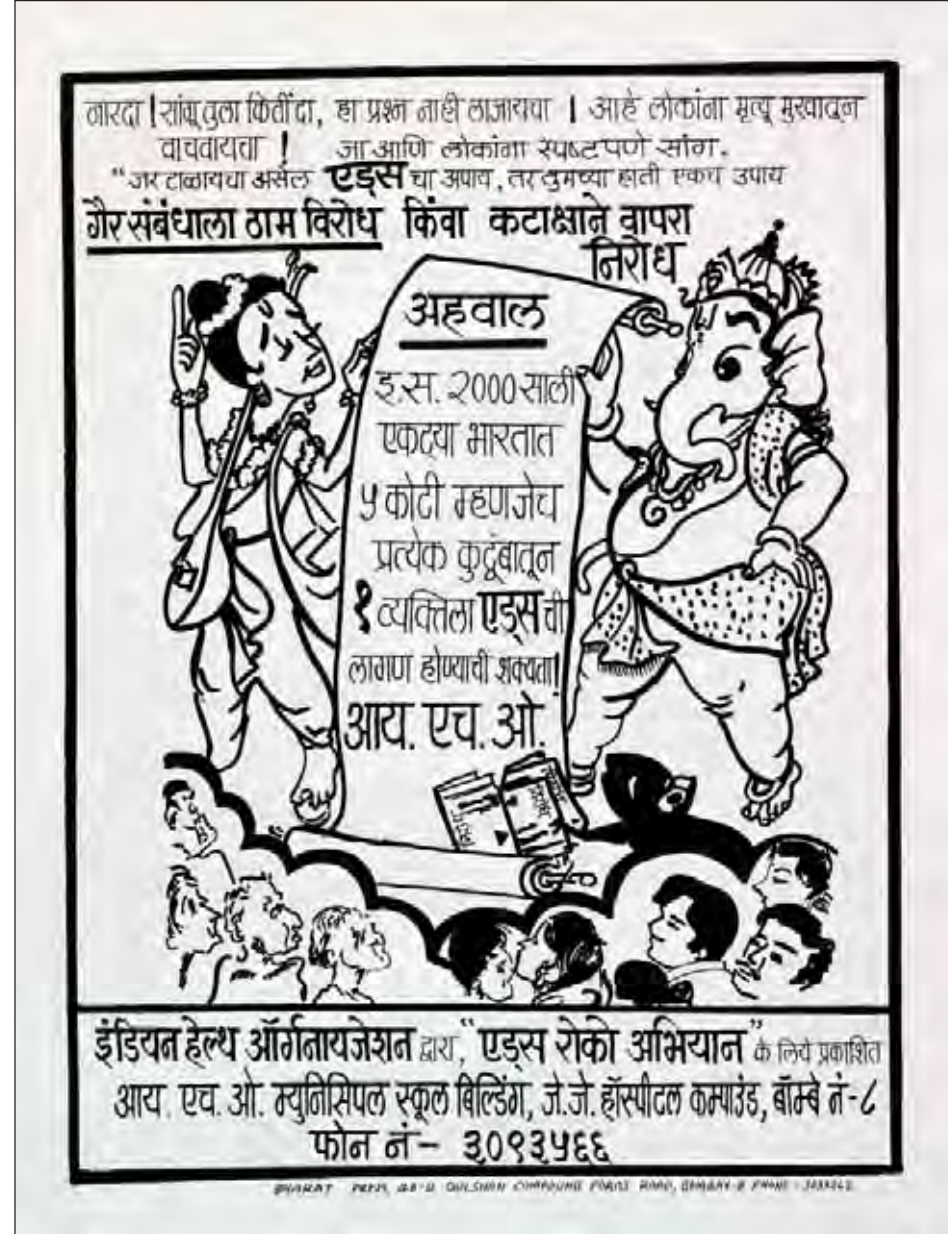 नारदा ! सांगू तुला कितींदा, हा प्रश्न नाही लाजायचा । आहे लोकांना मृत्यू मुखातून
वाचवायचा ! जा आणि लोकांना स्पष्टपणे सांग.
"जर टाळायचा असेल एड्स चा अपाय, तर तुमच्या हाती एकच उपाय
गैर संबंधाला ठाम विरोध किंवा कटाक्षाने वापरा
निरोध
अहवाल
इ.स. २००० साली
एकट्या भारतात
५ कोटी म्हणजेच
प्रत्येक कुटूंबातून
१ व्यक्तिला एड्स ची
लागण होण्याची शक्यता!
आय. एच. ओ.
इंडियन हेल्थ ऑर्गनायजेशन द्वारा, "एड्स रोको अभियान" के लिये प्रकाशित
आय. एच. ओ. म्युनिसिपल स्कूल बिल्डिंग, जे.जे. हॉस्पीटल कम्पाउंड, बॉम्बे नं-८
फोन नं- ३०९३५६६
BHARAT GULSHAN COMPOUND FORAS ROAD, BOMBAY-8 PHONE :